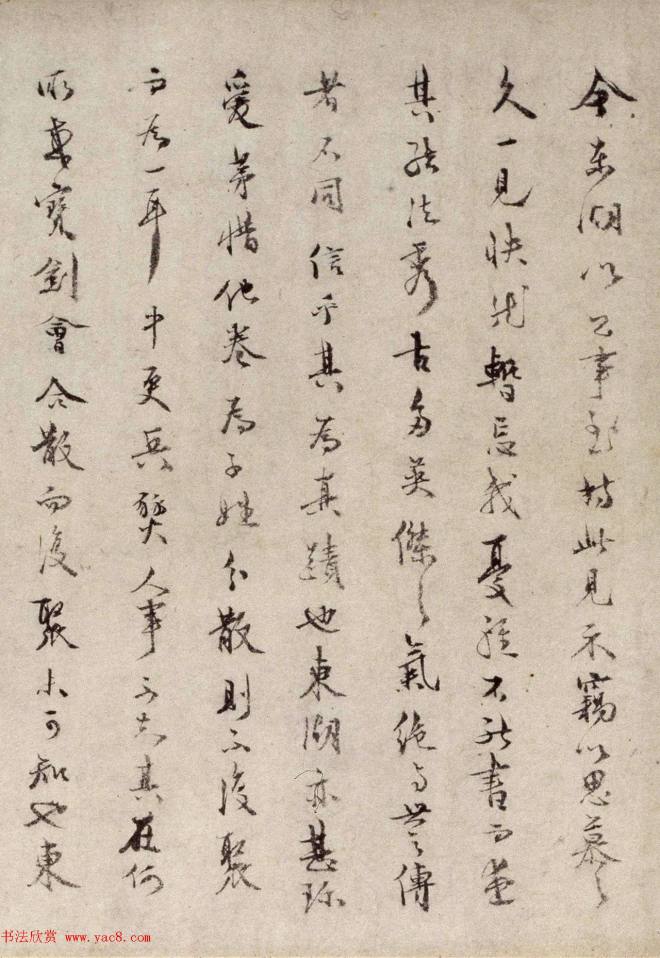 今東湖以公事至持此見示竊以思慕之
久一見快然暫忘我憂雖不能書而
其結法秀古多英傑之氣絕與世之傳
者不同信乎其為真蹟也東湖亦甚珍
愛第惜他卷為子姓分散則不復聚
而為一耳中更兵燹人事不知其在何
所寶劍會合散而復聚未可知也東
书法欣赏 www.yac8.com